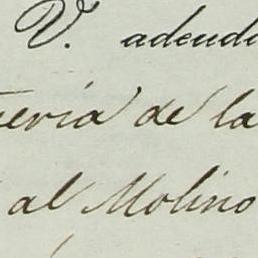 V. adeuda
de la
al Molino